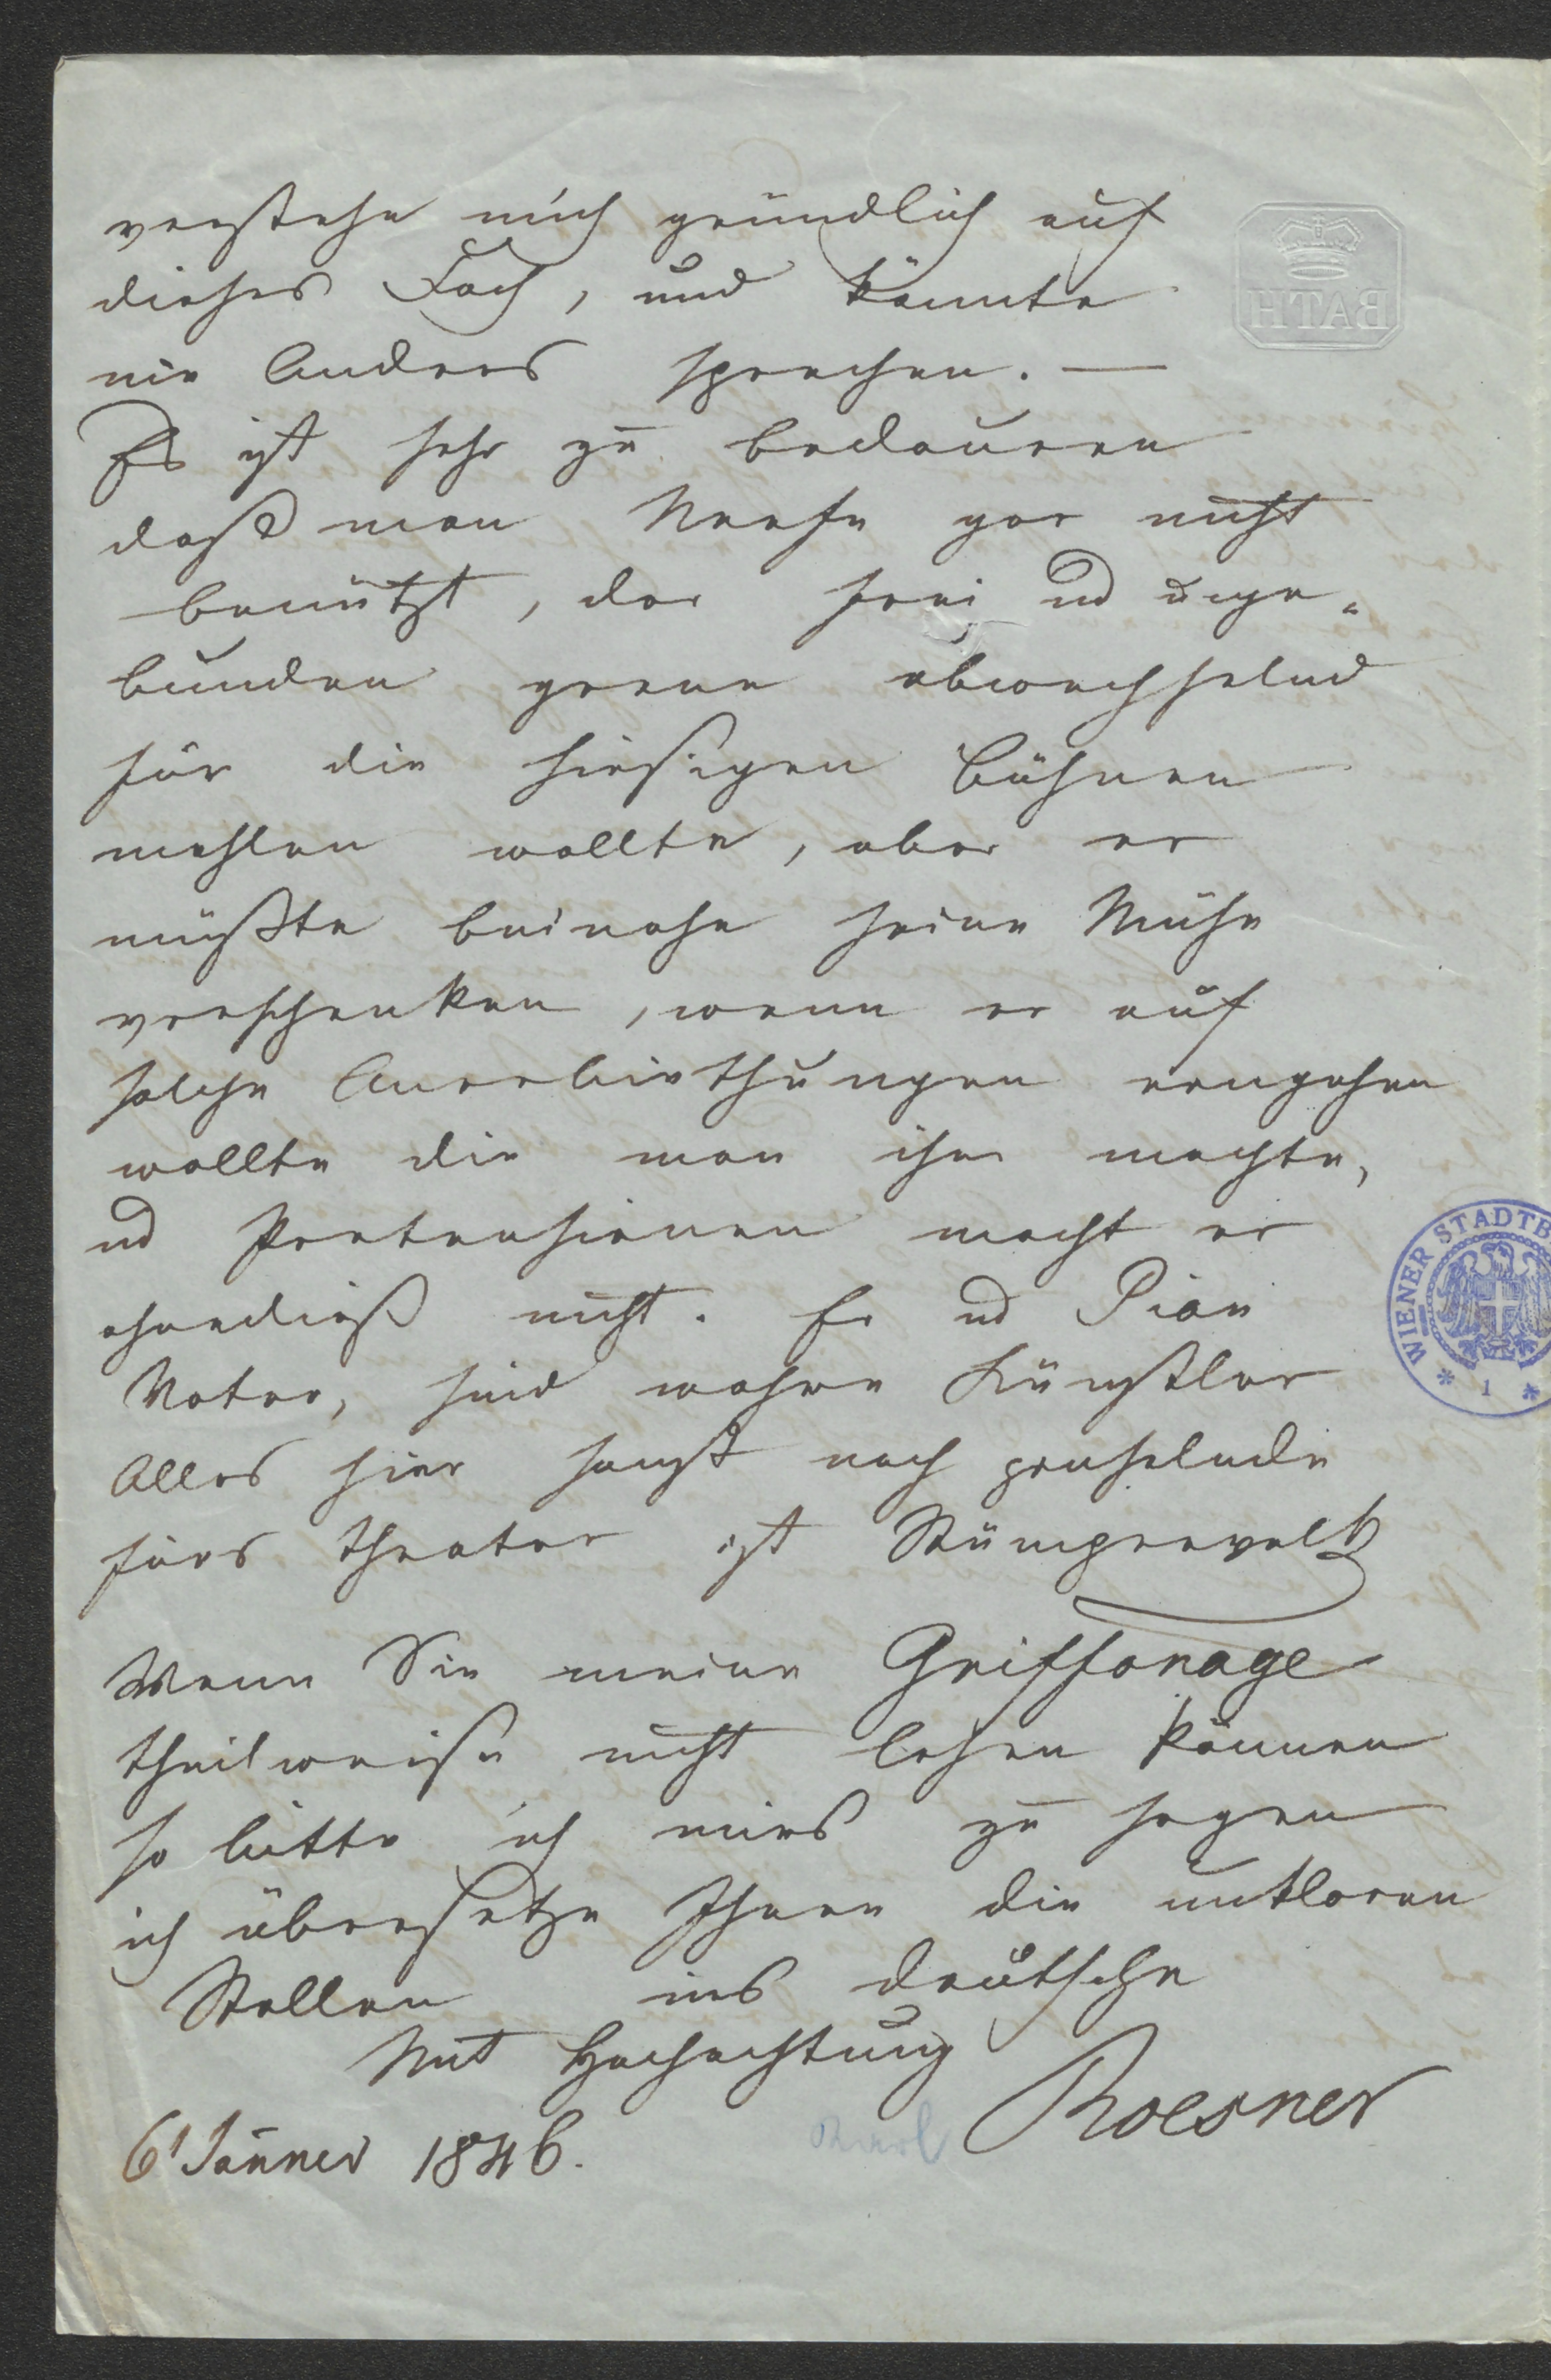 verstehe mich gründlich auf
BATH
dieses Fach, und könnte
nie Anders sprechen. —
Es ist sehr zu bedauern
daß man Neefe gar nicht
benützt, der frei ud unge-
bunden gerne abwechselnd
für die hiesigen Bühnen
mahlen wollte, aber er
müßte beinahe seine Mühe
verschenken, wenn er auf
solche Anerbiethungen eingehen
wollte die man ihm machte,
ud Pretensionen macht er
ohnedieß nicht. Er ud Pian
Vater, sind wahre Künstler
Alles hier sonst noch pinselnde
fürs Theater ist Stümpervolk
Wenn Sie meine Griffonage
theilweise nicht lesen können
so bitte ich mirs zu sagen
ich übersetze Ihnen die unklaren
Stellen ins deutsche
Mit Hochachtung
Karl Roesner
6' Jänner 1846.
WIENER STADTB
* 1 *